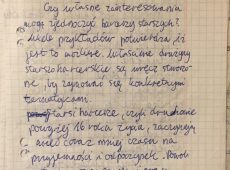 Czy własne zainteresowania
mogą jednoczyć harcerzy starszych?
Wiele przykładów potwierdza iż
jest to możliwe. Właściwie drużyny
starszoharcerskie są wręcz stworzo-
ne, by zajmować się konkretnym
tematycznym.
Starsi harcerze, czyli druhowie
powyżej 16 roku życia, zaczynają
mieć coraz mniej czasu na
przyjemności a odpoczynek.